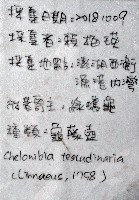 採集日期:20181009
採集者:賴柏瑛
採集地點:澎湖西衛
濕濕內灣
寄主:綠蠵龜
種類:龜藤壺
Chelonibia testudinaria
(Linnaeus, 1758)